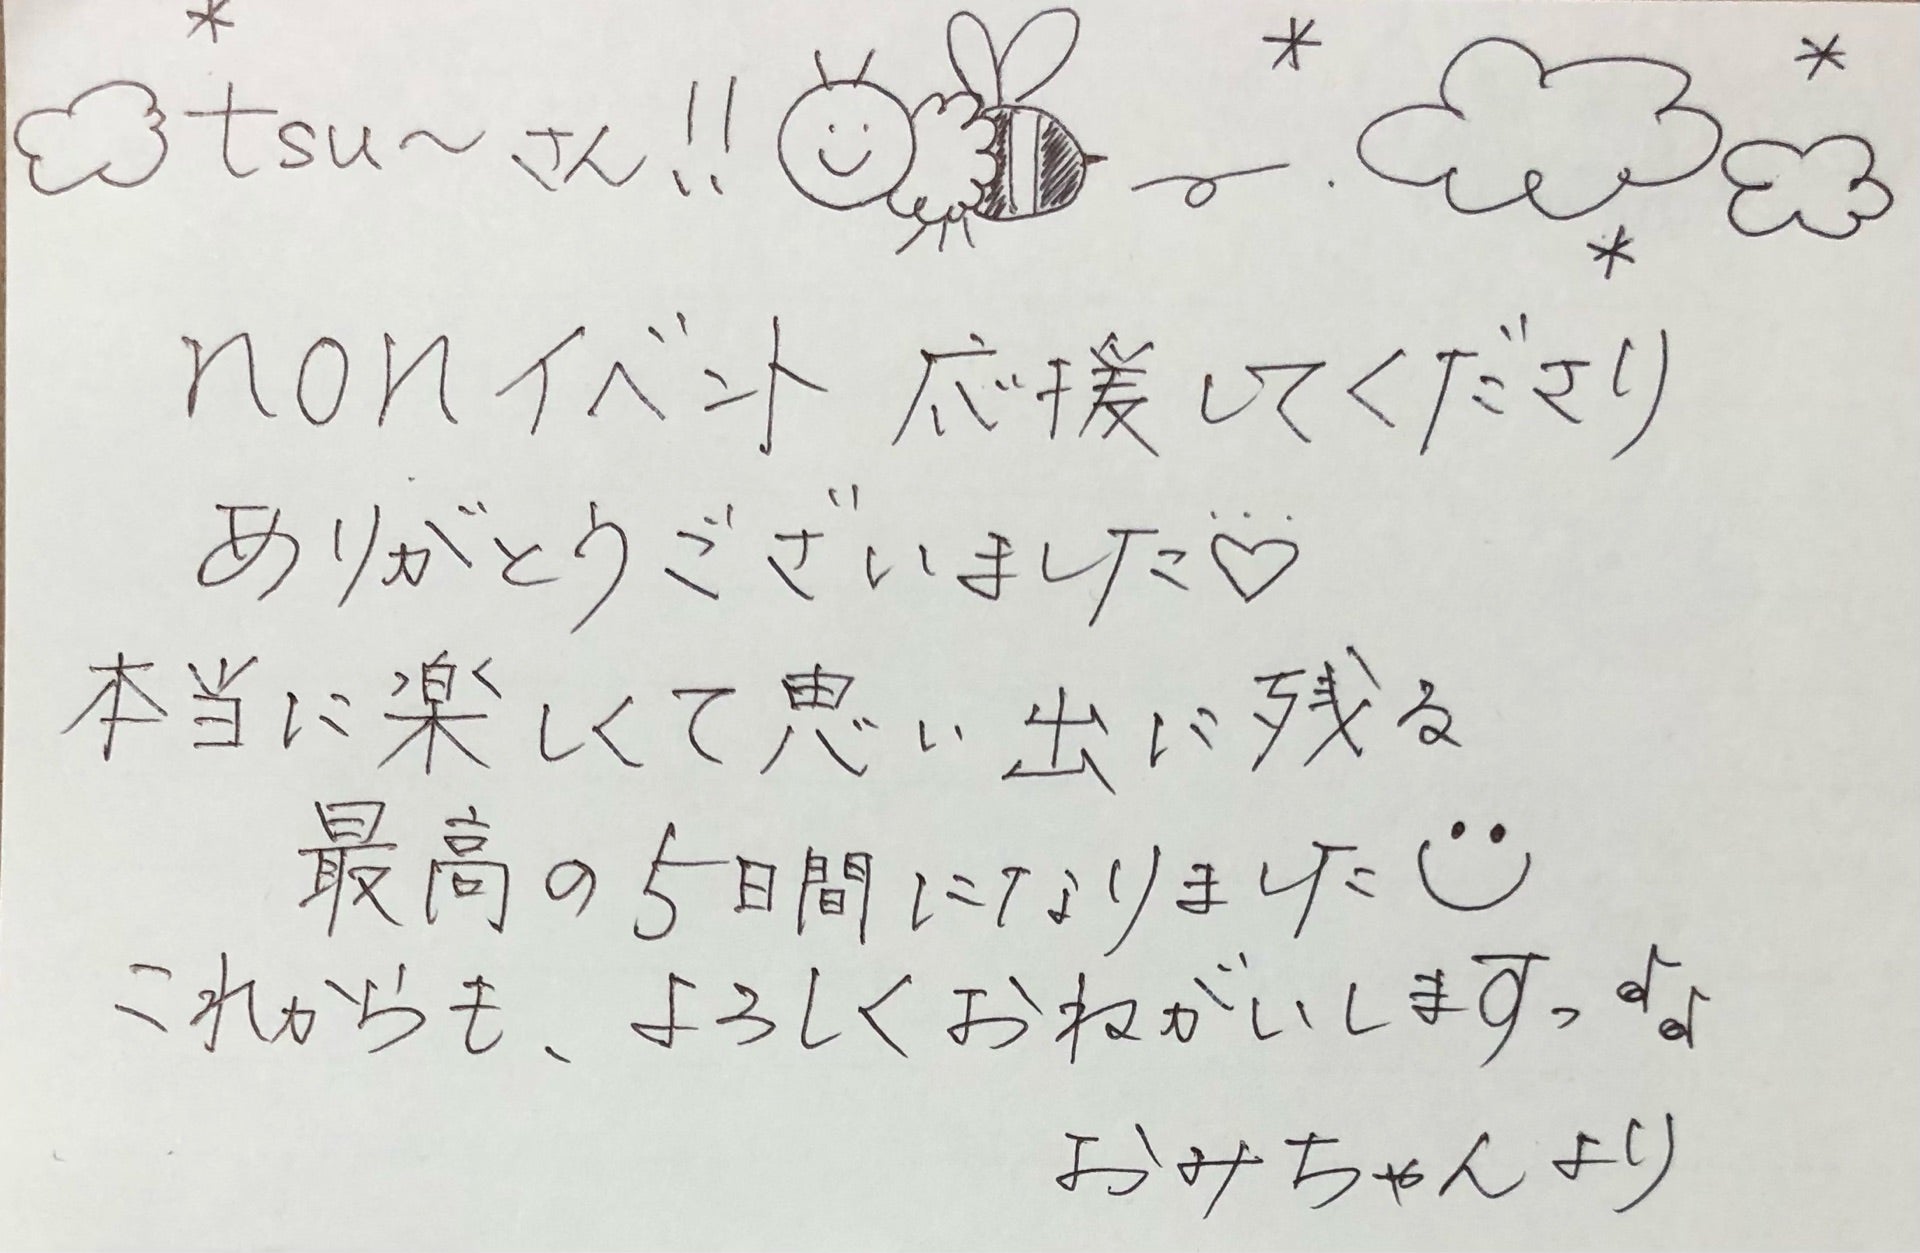 tsu〜さん!!
nonイベント 応援してくださり
ありがとうございました♡
本当に楽しくて思い出に残る
最高の5日間になりました
これからも、よろしくおねがいしますっ♪♪
おみちゃんより